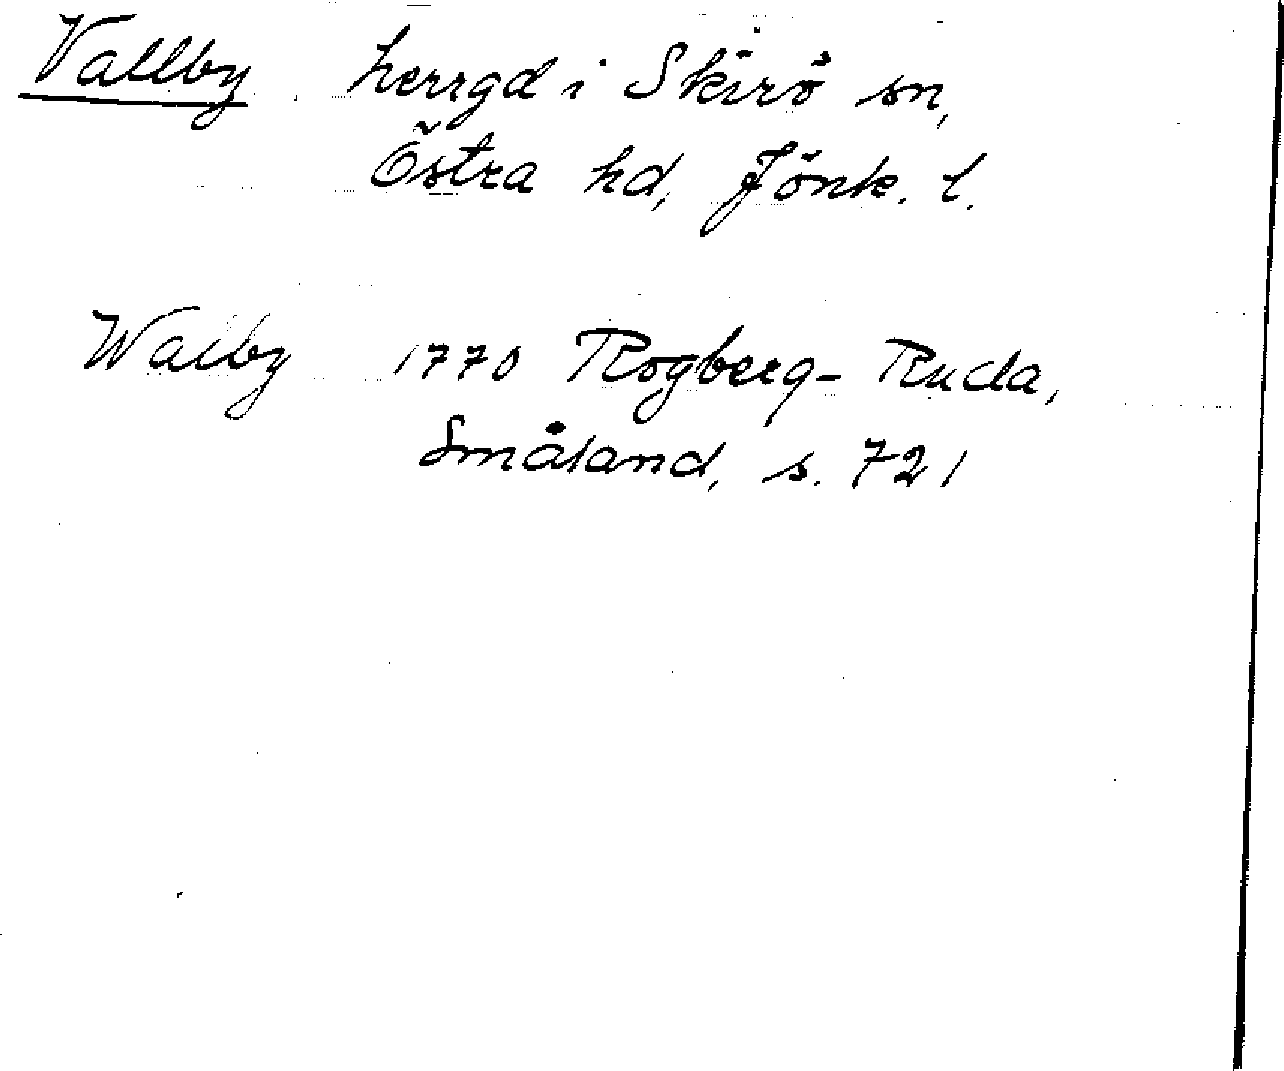 Vallby herrgd i Skirö sn,
Östra hd, Jönk. l.
Walby 1770 Rogberg-Ruda,
Småland, s. 721